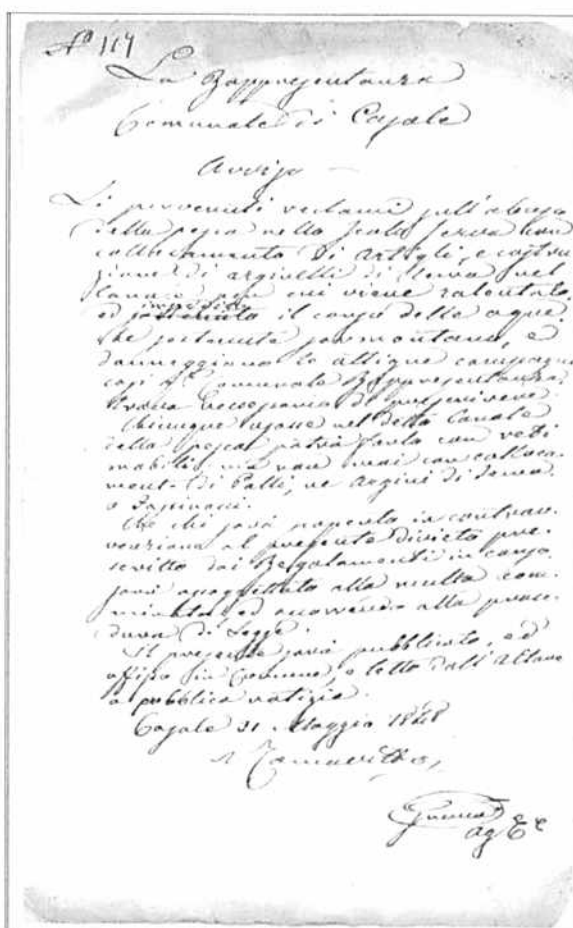 N° 119
La Rappresentanza
Comunale di Casale
Avviso
Li pervenuti reclami sull'abuso
della pesca nello Scolo Serva con
collocamento di artigli, e costru
zione di arginelli di terra nel
Canale per cui viene ralentato,
ed impedito il corso delle aque
che sortumontano, e
danneggiano le attigue campagne
così q.ta Comunale Rappresentanza
trova necessario di prescrivere
Chiunque usasse nel detto Canale
della pesca potrà farlo con reti
mobili, ma non mai con colloca
mento di Palli, ne argini di terra
o
Che chi sarà in contrav
venzione al presente divieto pre
scritto dai Regolamenti in corso
sarà assoggettato alla multa com
minata, ed occorrendo alla proce
dura di Legge.
Il presente sarà pubblicato, ed
affisso in Comune, e letto dall'Altare
a pubblica notizia.
Casale 31 Maggio 1848
ag E e